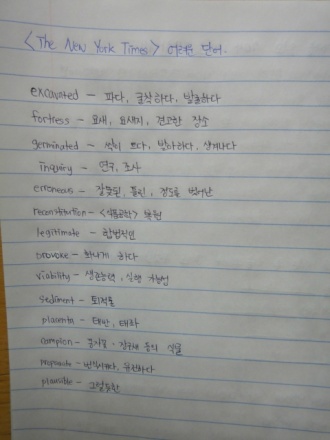 <The New York Times> 어려운 단어.
excavated - 파다, 굴착하다, 발굴하다
fortress - 요새, 요새지, 견고한 장소
germinated - 싹이 트다, 발아하다, 생겨나다
inquiry - 연구, 조사
erroneous - 잘못된, 틀린, 정도를 벗어난
reconstitution - <식품공학> 복원
legitimate - 합법적인
provoke - 화나게 하다
viability - 생존능력, 실행 가능성
sediment - 퇴적물
placenta - 태반, 태좌
campion - 동자꽃·장구채 등의 식물
propagate - 번식시키다, 유전하다
plausible - 그럴듯한